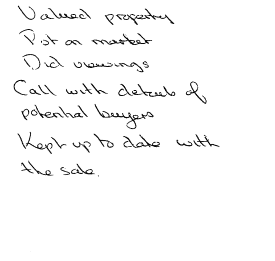 Valued property
Put on market
Did viewings
Call with details of
potential buyers
Kept up to date with
the sale.